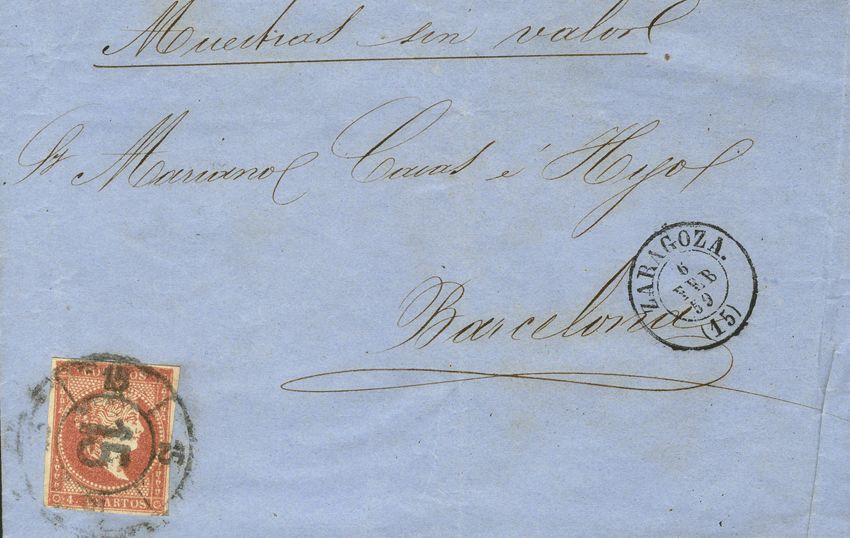 Muestras sin valor
Sr Mariano Casas é Hijo
Barcelona
ZARAGOZA.
6
FEB
59
(15)
15
15
15
4 CUARTOS